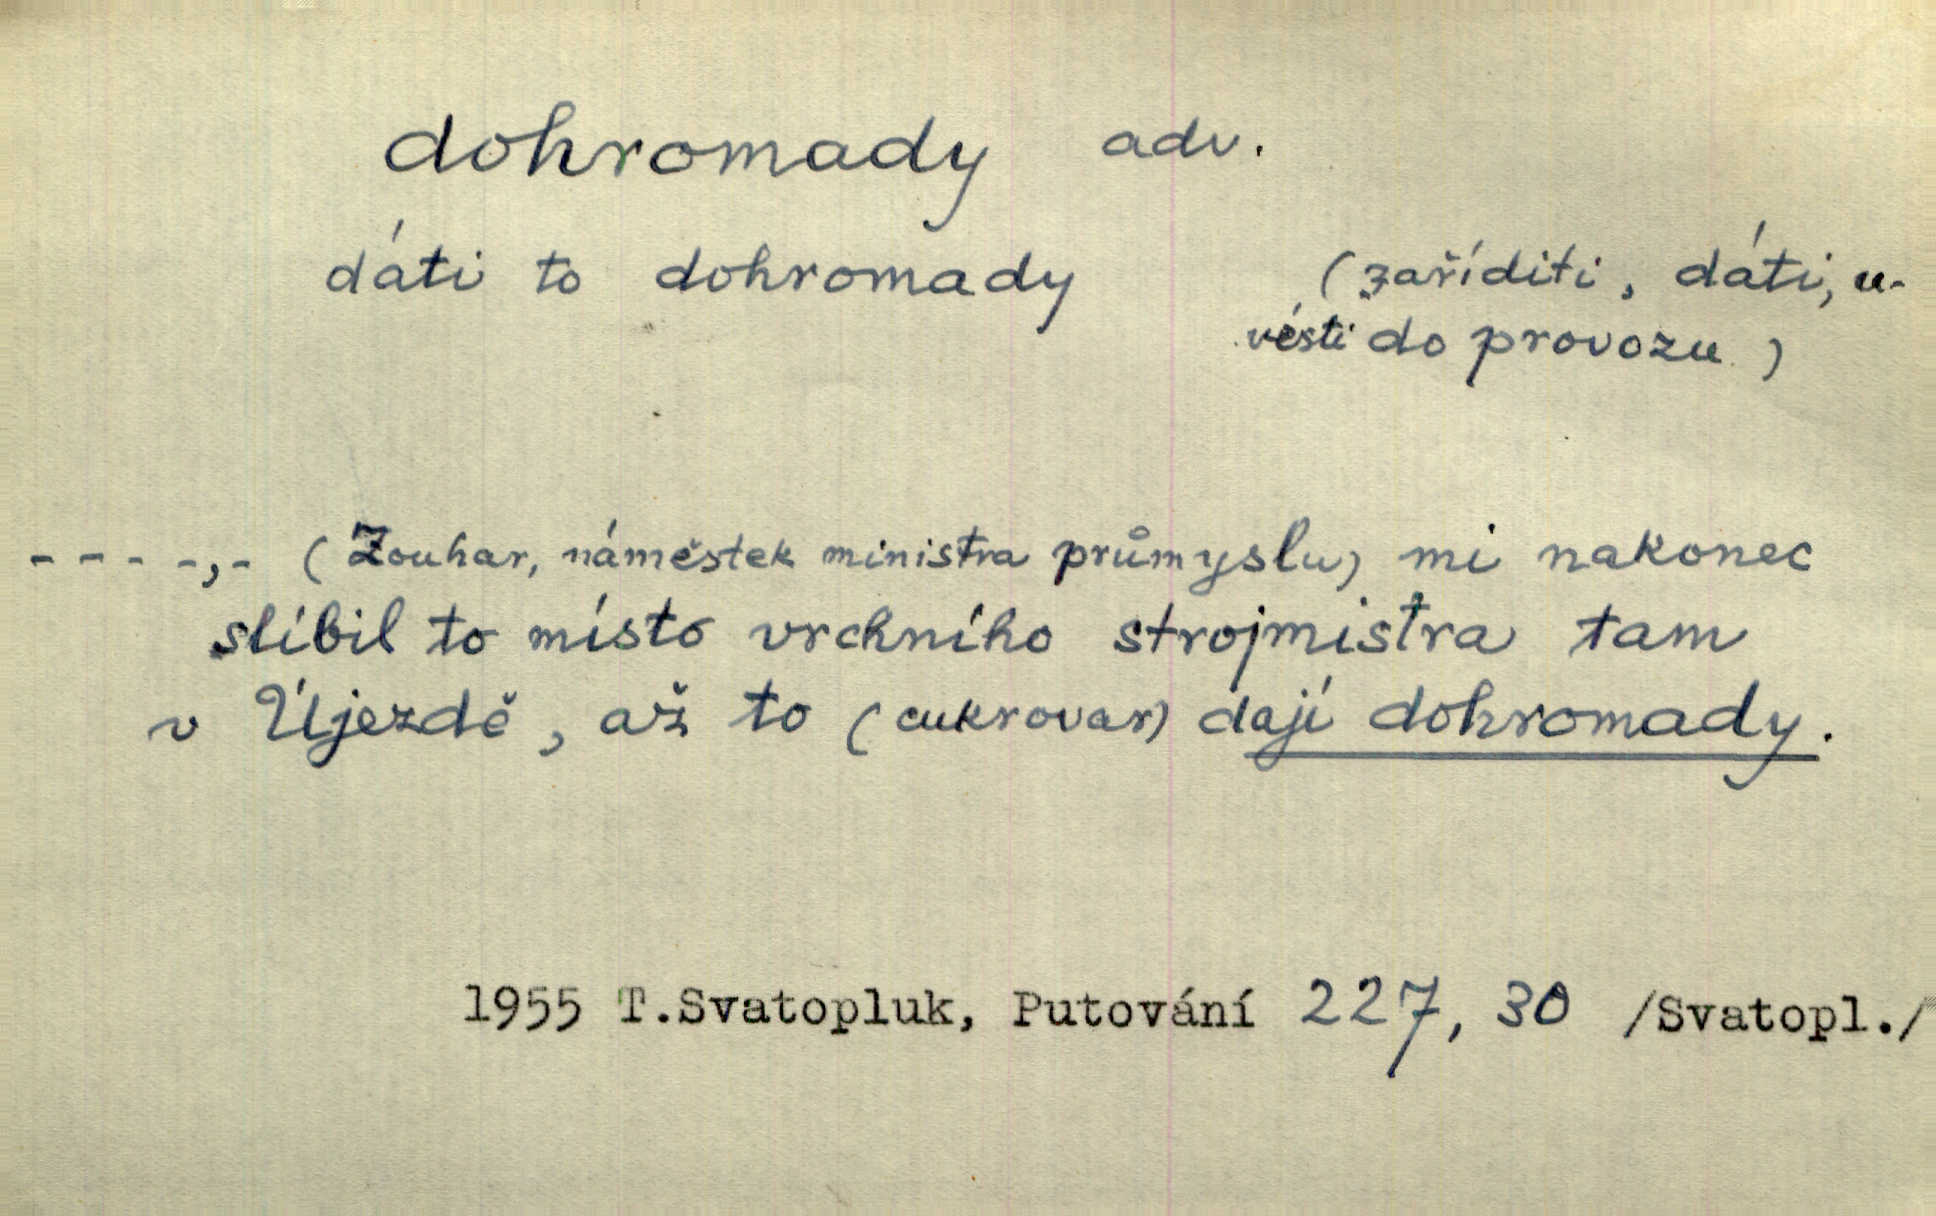 dohromady adv.
dáti to dohromady (zaříditi, dáti, u-
vésti do provozu)
- - - -,- (Zouhar, náměstek ministra průmyslu) mi nakonec
slíbil to místo vrchního strojmistra tam
v Újezdě, až to (cukrovar) dají dohromady.
1955 T.Svatopluk, Putování 227, 30 /Svatopl./